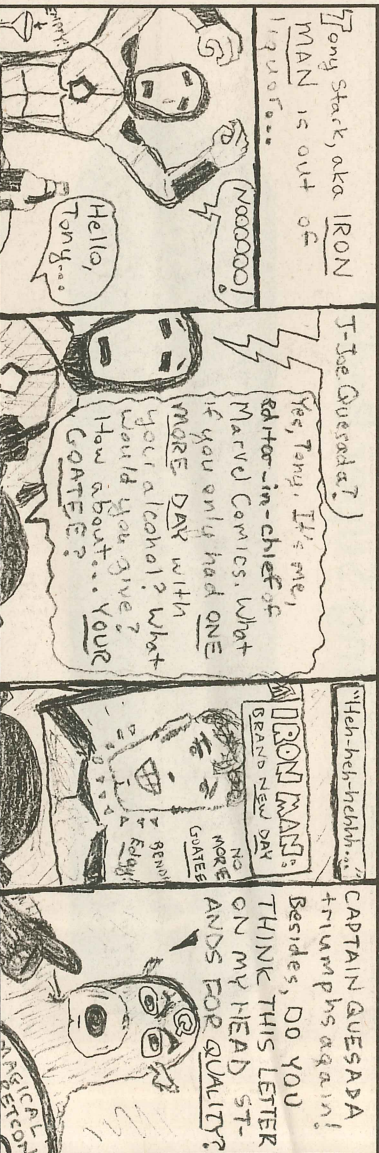 Tony Stark, aka IRON
MAN is out of
liquor...
Nooooooo!
Hello,
Tony...
J-Joe Quesada?
Yes, Tony. It's me,
editor-in-chief of
Marvel Comics. What
if you only had ONE
MORE DAY with
your alcohol? What
would you give?
How about... YOUR
GOATEE?
"Heh-heh-hehhh..."
IRON MAN:
BRAND NEW DAY
NO
MORE
GOATEE
CAPTAIN QUESADA
triumphs again!
Besides, DO YOU
THINK THIS LETTER
ON MY HEAD ST-
ANDS FOR QUALITY?
Q
MAGICAL
RETCON